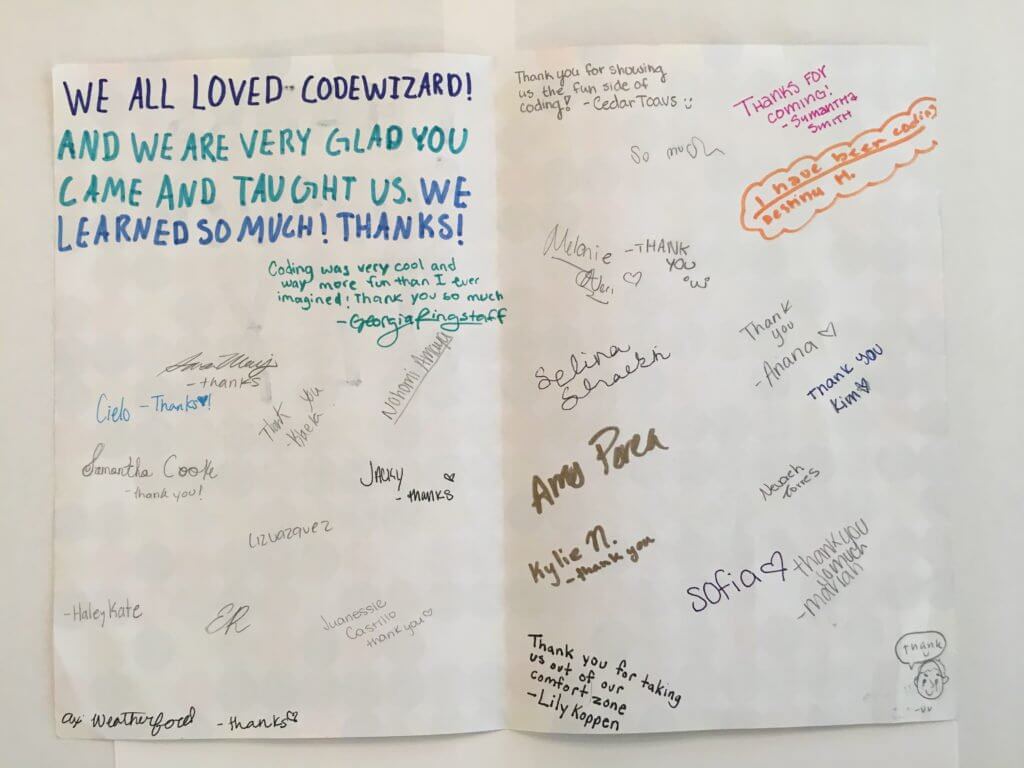 WE ALL LOVED CODEWIZARD!
AND WE ARE VERY GLAD YOU
CAME AND TAUGHT US. WE
LEARNED SO MUCH! THANKS!
Coding was very cool and
way more fun than I ever
imagined! Thank you so much
-Georgia Ringstaff
-thanks
Cielo -Thanks♥!
Thank You
Nohami Amaya
Samantha Cooke
-thank you!
Jacky
-thanks
Liz vazquez
-Haley Kate
ER
Juanessie
Castillo
thank you♡
Weatherford -thanks♡
Thank you for showing
us the fun side of
coding! -Cedar Toavs
THANKS FOR
COMING!
-Samantha
Smith
so much
I have beer coding
Destinu M.
Melanie
-THANK
YOU
"u"
Selina
Shaekh
Thank
you
-Ariana ♡
Thank you
Kim
Amy Perea
Nevaeh
Torres
Kylie N.
-thank you
Sofia♡
thank you
so much
-marian
Thank you for taking
us out of our
comfort zone
-Lily Koppen
thank
u